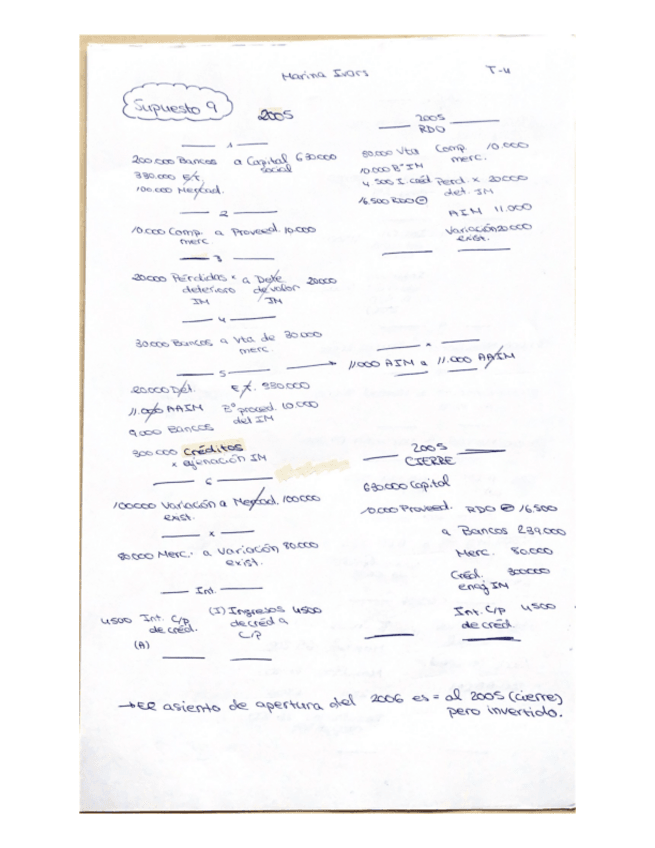 Marina Ivors
T-4
Supuesto 9
2005
1
200.000 Bancos a Capital 630000
social
330.000 E/T.
100.000 Mercad.
2
10.000 Comp. a Proveed. 10.000
merc.
3
20000 Pérdidas x a Dete 20000
deterioro de valor
IM IM
4
30.000 Bancos a Vta de 30.000
merc.
5
20.000 Det. E/T. 330.000
11.000 AAIM Bº proced. 10.000
del IM
9000 Bancos
300.000 Créditos
x ejenación IM
6
100000 Variación a Mercad. 100000
exist.
x
80.000 Merc. a Variación 80.000
exist.
Int.
4500 Int. C/p (I) Ingresos 4500
de créd. de créd a
(A) C/P
2005
RDO
30.000 Vta Comp. 10.000
merc.
10.000 Bº IM
4 500 I. créd. Perd. x 20000
det. IM
16.500 RDO ⊖
AIM 11.000
Variación 20000
exist.
x
11000 AIM a 11.000 AAIM
2005
CIERRE
630.000 Capital
10.000 Proveed. RDO ⊖ 16.500
a Bancos 239.000
Merc. 80.000
Créd. 300000
enaj IM
Int. C/p 4500
de créd.
→ El asiento de apertura del 2006 es = al 2005 (cierre)
pero invertido.